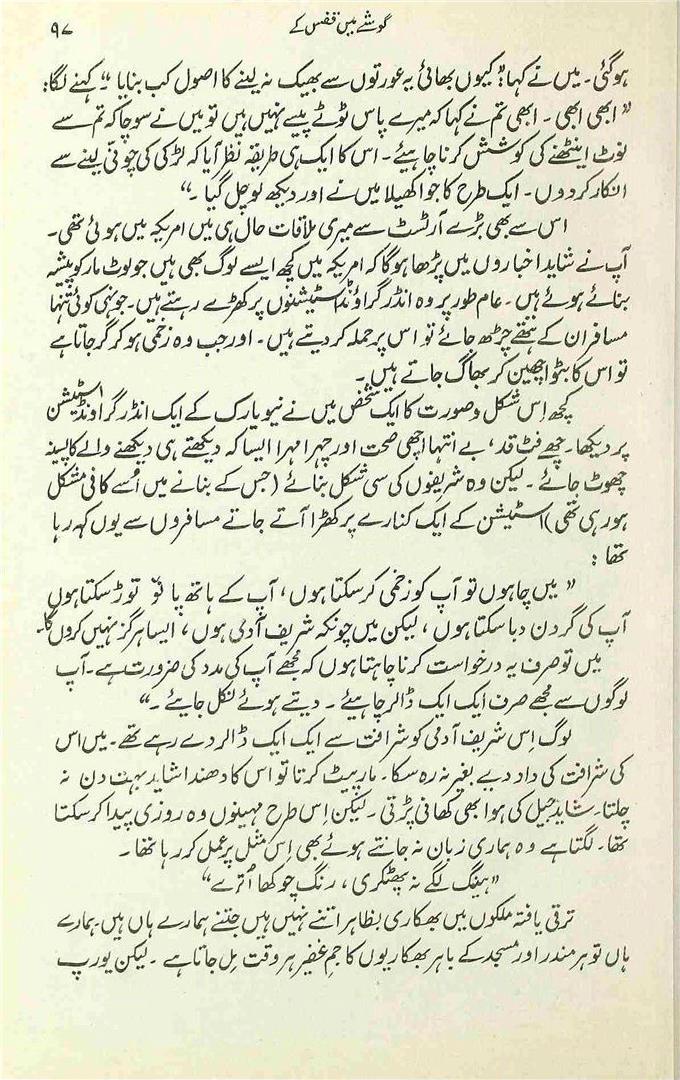 گوشے میں قفس کے
۹۷
ہوگئی۔ میں نے کہا: "کیوں بھائی یہ عورتوں سے بھیک نہ لینے کا اصول کب بنایا۔" کہنے لگا:
"ابھی ابھی۔ ابھی تم نے کہا کہ میرے پاس ٹوٹے پیسے نہیں ہیں تو میں نے سوچا کہ تم سے
نوٹ اینٹھنے کی کوشش کرنا چاہیئے۔ اس کا ایک ہی طریقہ نظر آیا کہ لڑکی کی چونّی لینے سے
انکار کردوں۔ ایک طرح کا جوا کھیلا میں نے اور دیکھ لو چل گیا۔"
اس سے بھی بڑے آرٹسٹ سے میری ملاقات حال ہی میں امریکہ میں ہوئی تھی۔
آپ نے شاید اخباروں میں پڑھا ہوگا کہ امریکہ میں کچھ ایسے لوگ بھی ہیں جو لوٹ مار کو پیشہ
بنائے ہوئے ہیں۔ عام طور پر وہ انڈر گراونڈ اسٹیشنوں پر کھڑے رہتے ہیں۔ جونہی کوئی تنہا
مسافر ان کے ہتھے چڑھ جائے تو اس پر حملہ کر دیتے ہیں۔ اور جب وہ زخمی ہو کر گر جاتا ہے
تو اس کا بٹوا چھین کر بھاگ جاتے ہیں۔
کچھ اِس شکل و صورت کا ایک شخص میں نے نیویارک کے ایک انڈر گراونڈ اسٹیشن
پر دیکھا۔ چھے فٹ قد، بے انتہا اچھی صحت اور چہرا مہرا ایسا کہ دیکھتے ہی دیکھنے والے کا پسینہ
چھوٹ جائے۔ لیکن وہ شریفوں کی سی شکل بنائے (جس کے بنانے میں اُسے کافی مشکل
ہو رہی تھی) اسٹیشن کے ایک کنارے پر کھڑا آتے جاتے مسافروں سے یوں کہہ رہا
تھا:
"میں چاہوں تو آپ کو زخمی کر سکتا ہوں، آپ کے ہاتھ پانو توڑ سکتا ہوں
آپ کی گردن دبا سکتا ہوں، لیکن میں چونکہ شریف آدمی ہوں، ایسا ہرگز نہیں کروں گا۔
میں تو صرف یہ درخواست کرنا چاہتا ہوں کہ مجھے آپ کی مدد کی ضرورت ہے۔ آپ
لوگوں سے مجھے صرف ایک ایک ڈالر چاہیئے۔ دیتے ہوئے نکل جایئے۔"
لوگ اِس شریف آدمی کو شرافت سے ایک ایک ڈالر دے رہے تھے۔ میں اس
کی شرافت کی داد دیے بغیر نہ رہ سکا۔ مار پیٹ کرتا تو اس کا دھندا شاید بہت دن نہ
چلتا۔ شاید جیل کی ہوا بھی کھانی پڑتی۔ لیکن اِس طرح مہینوں وہ روزی پیدا کر سکتا
تھا۔ لگتا ہے وہ ہماری زبان نہ جانتے ہوئے بھی اِس مثل پر عمل کر رہا تھا۔
"ہینگ لگے نہ پھٹکری، رنگ چوکھا اُترے"
ترقی یافتہ ملکوں میں بھکاری بظاہر اتنے نہیں ہیں جتنے ہمارے ہاں ہیں۔ ہمارے
ہاں تو ہر مندر اور مسجد کے باہر بھکاریوں کا جمِ غفیر ہر وقت مِل جاتا ہے۔ لیکن یورپ